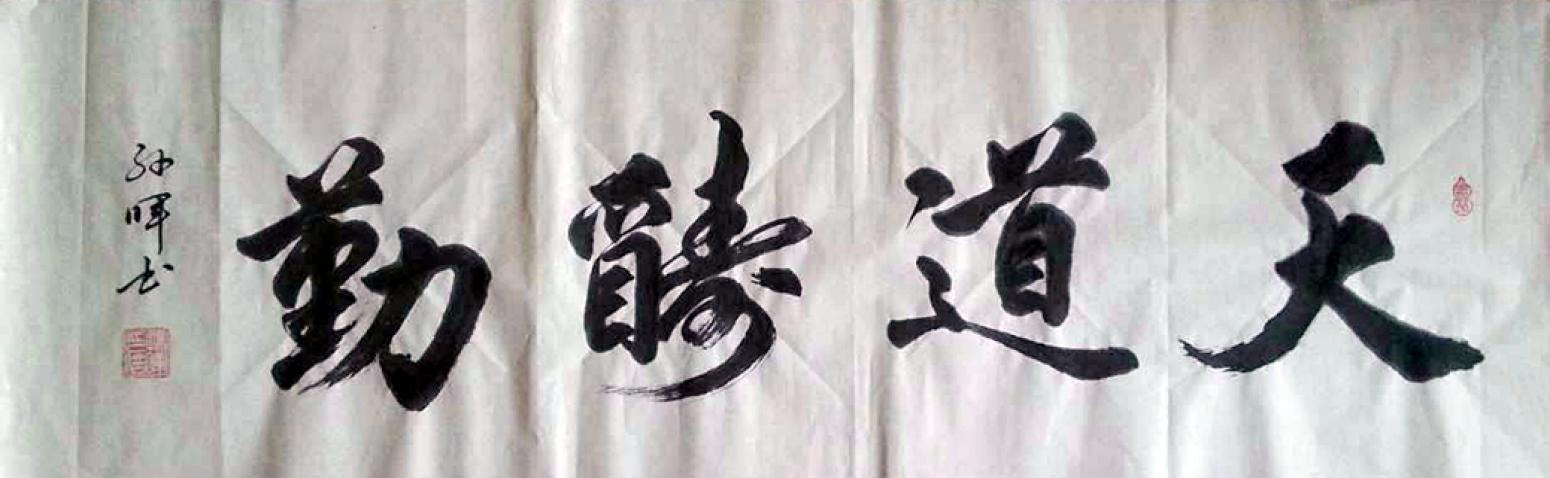 天道酬勤
孙晖书